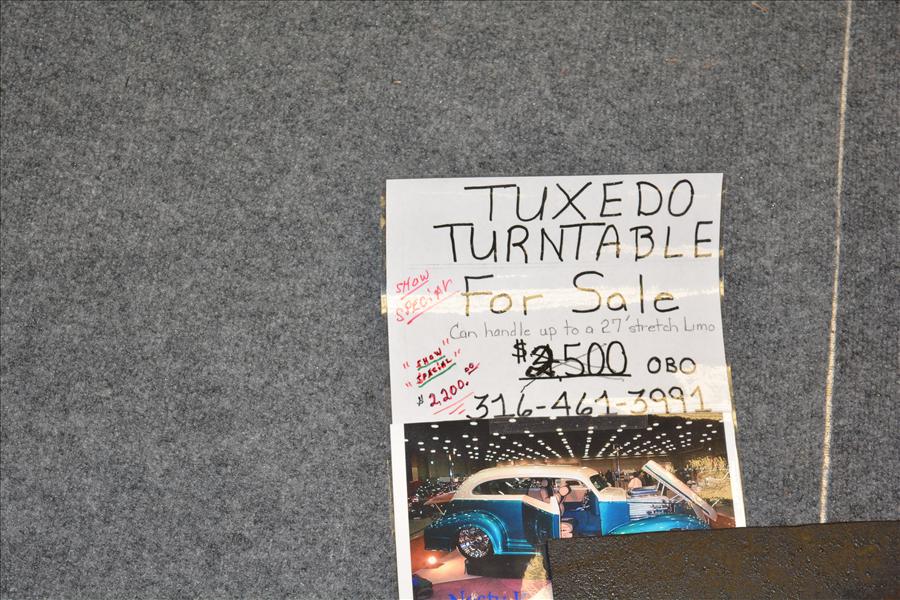 TUXEDO
TURNTABLE
SHOW
SPECIAL
For Sale
Can handle up to a 27' stretch Limo
"SHOW"
"SPECIAL"
$2,500 OBO
$2,200.00
316-461-3991